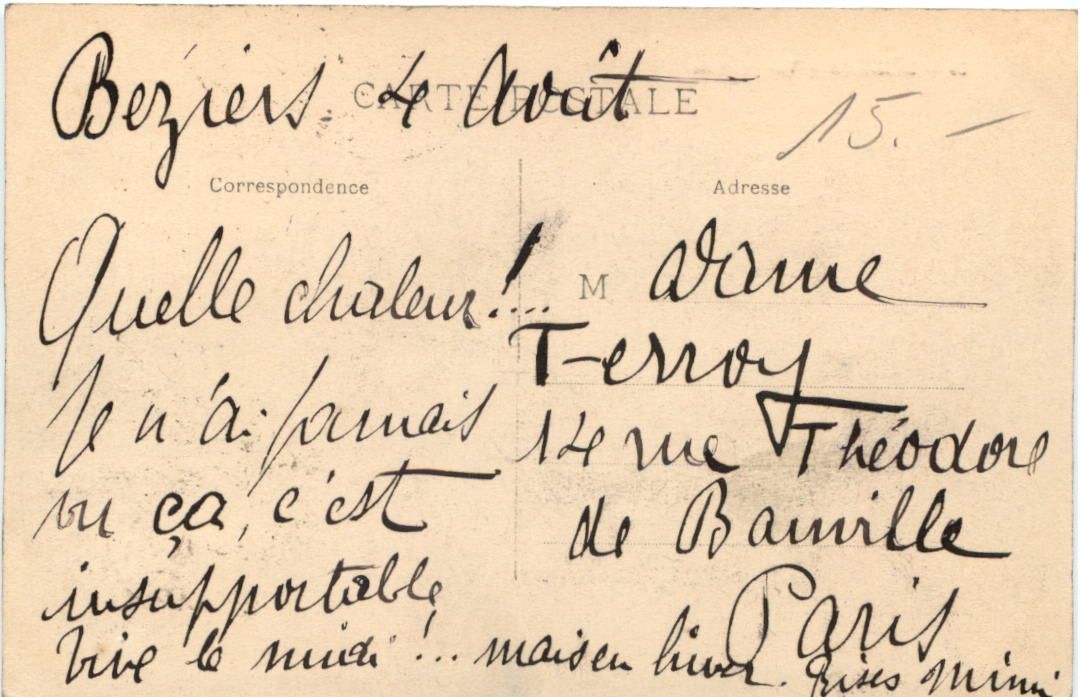 Beziers 4 Août
CARTE POSTALE
15.-
Correspondence
Adresse
Quelle chaleur!...
Je n'ai jamais
vu ça, c'est
insupportable
Vive le midi!... mais en hiver. Bises Mimi
M adame
Terroy
14 rue Théodore
de Banville
Paris